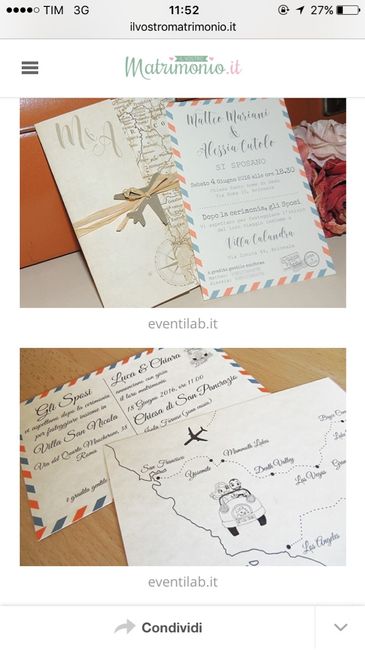 TIM 3G 11:52 27%
ilvostromatrimonio.it
IL VOSTRO
Matrimonio.it
M&A
Matteo Mariani
&
Alessia Cutolo
SI SPOSANO
Sabato 4 Giugno 2016 alle ore 18.30
Dopo la cerimonia, gli Sposi
Villa Calandra
eventilab.it
Gli Sposi
vi aspettano dopo la cerimonia
per festeggiare insieme in
Villa San Nicola
Via del Quarto
Roma
è gradita gentile
Luca & Chiara
annunciano con gioia
il loro matrimonio
18 Giugno 2016, ore 11:00
Chiesa di San Pancrazio
San Francisco
Yosemite
Mammoth Lakes
Death Valley
Las Vegas
Bryce
Gran
Los Angeles
eventilab.it
Condividi